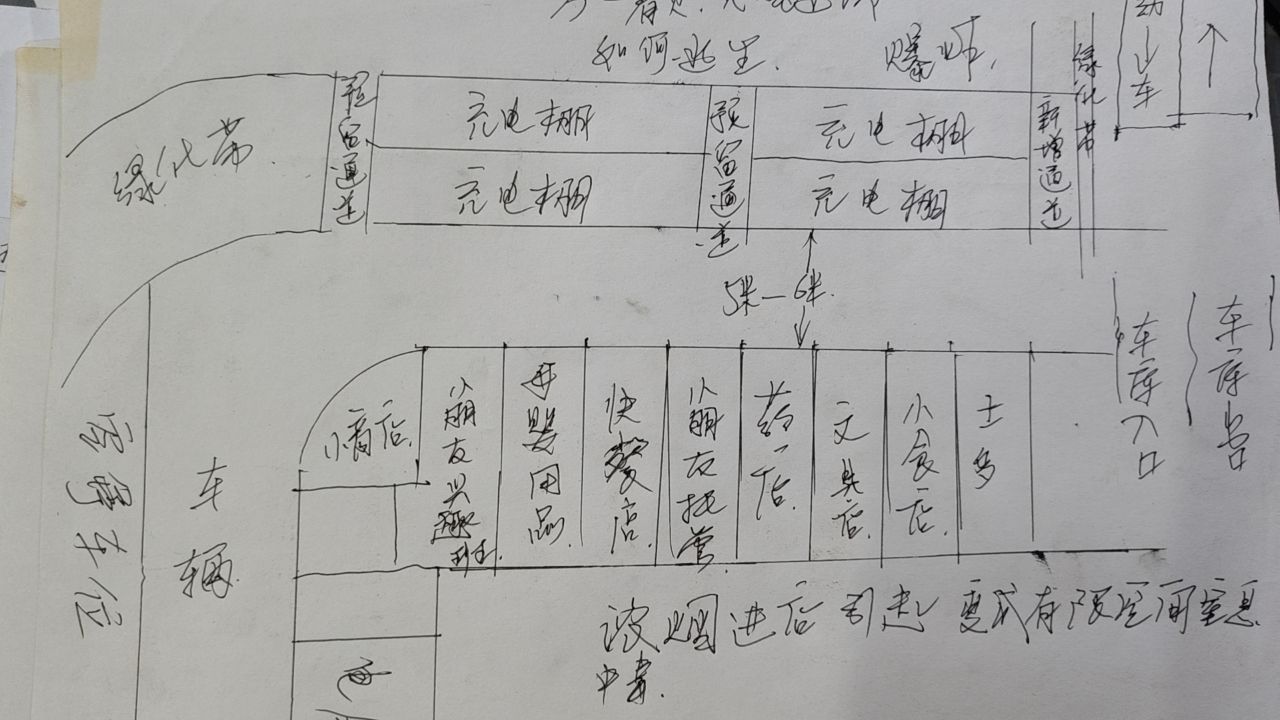 如何逃生. 爆炸.
绿化带
预留通道
充电棚
充电棚
预留通道
充电棚
充电棚
新增通道
绿化带
动
车
5米—6米.
车库入口
车库出口
车位
车辆
小朋友兴趣班.
母婴用品.
快餐店.
小朋友托管.
药店.
文具店.
小食店.
士多
浓烟进店引起 变成有限空间窒息
中毒.